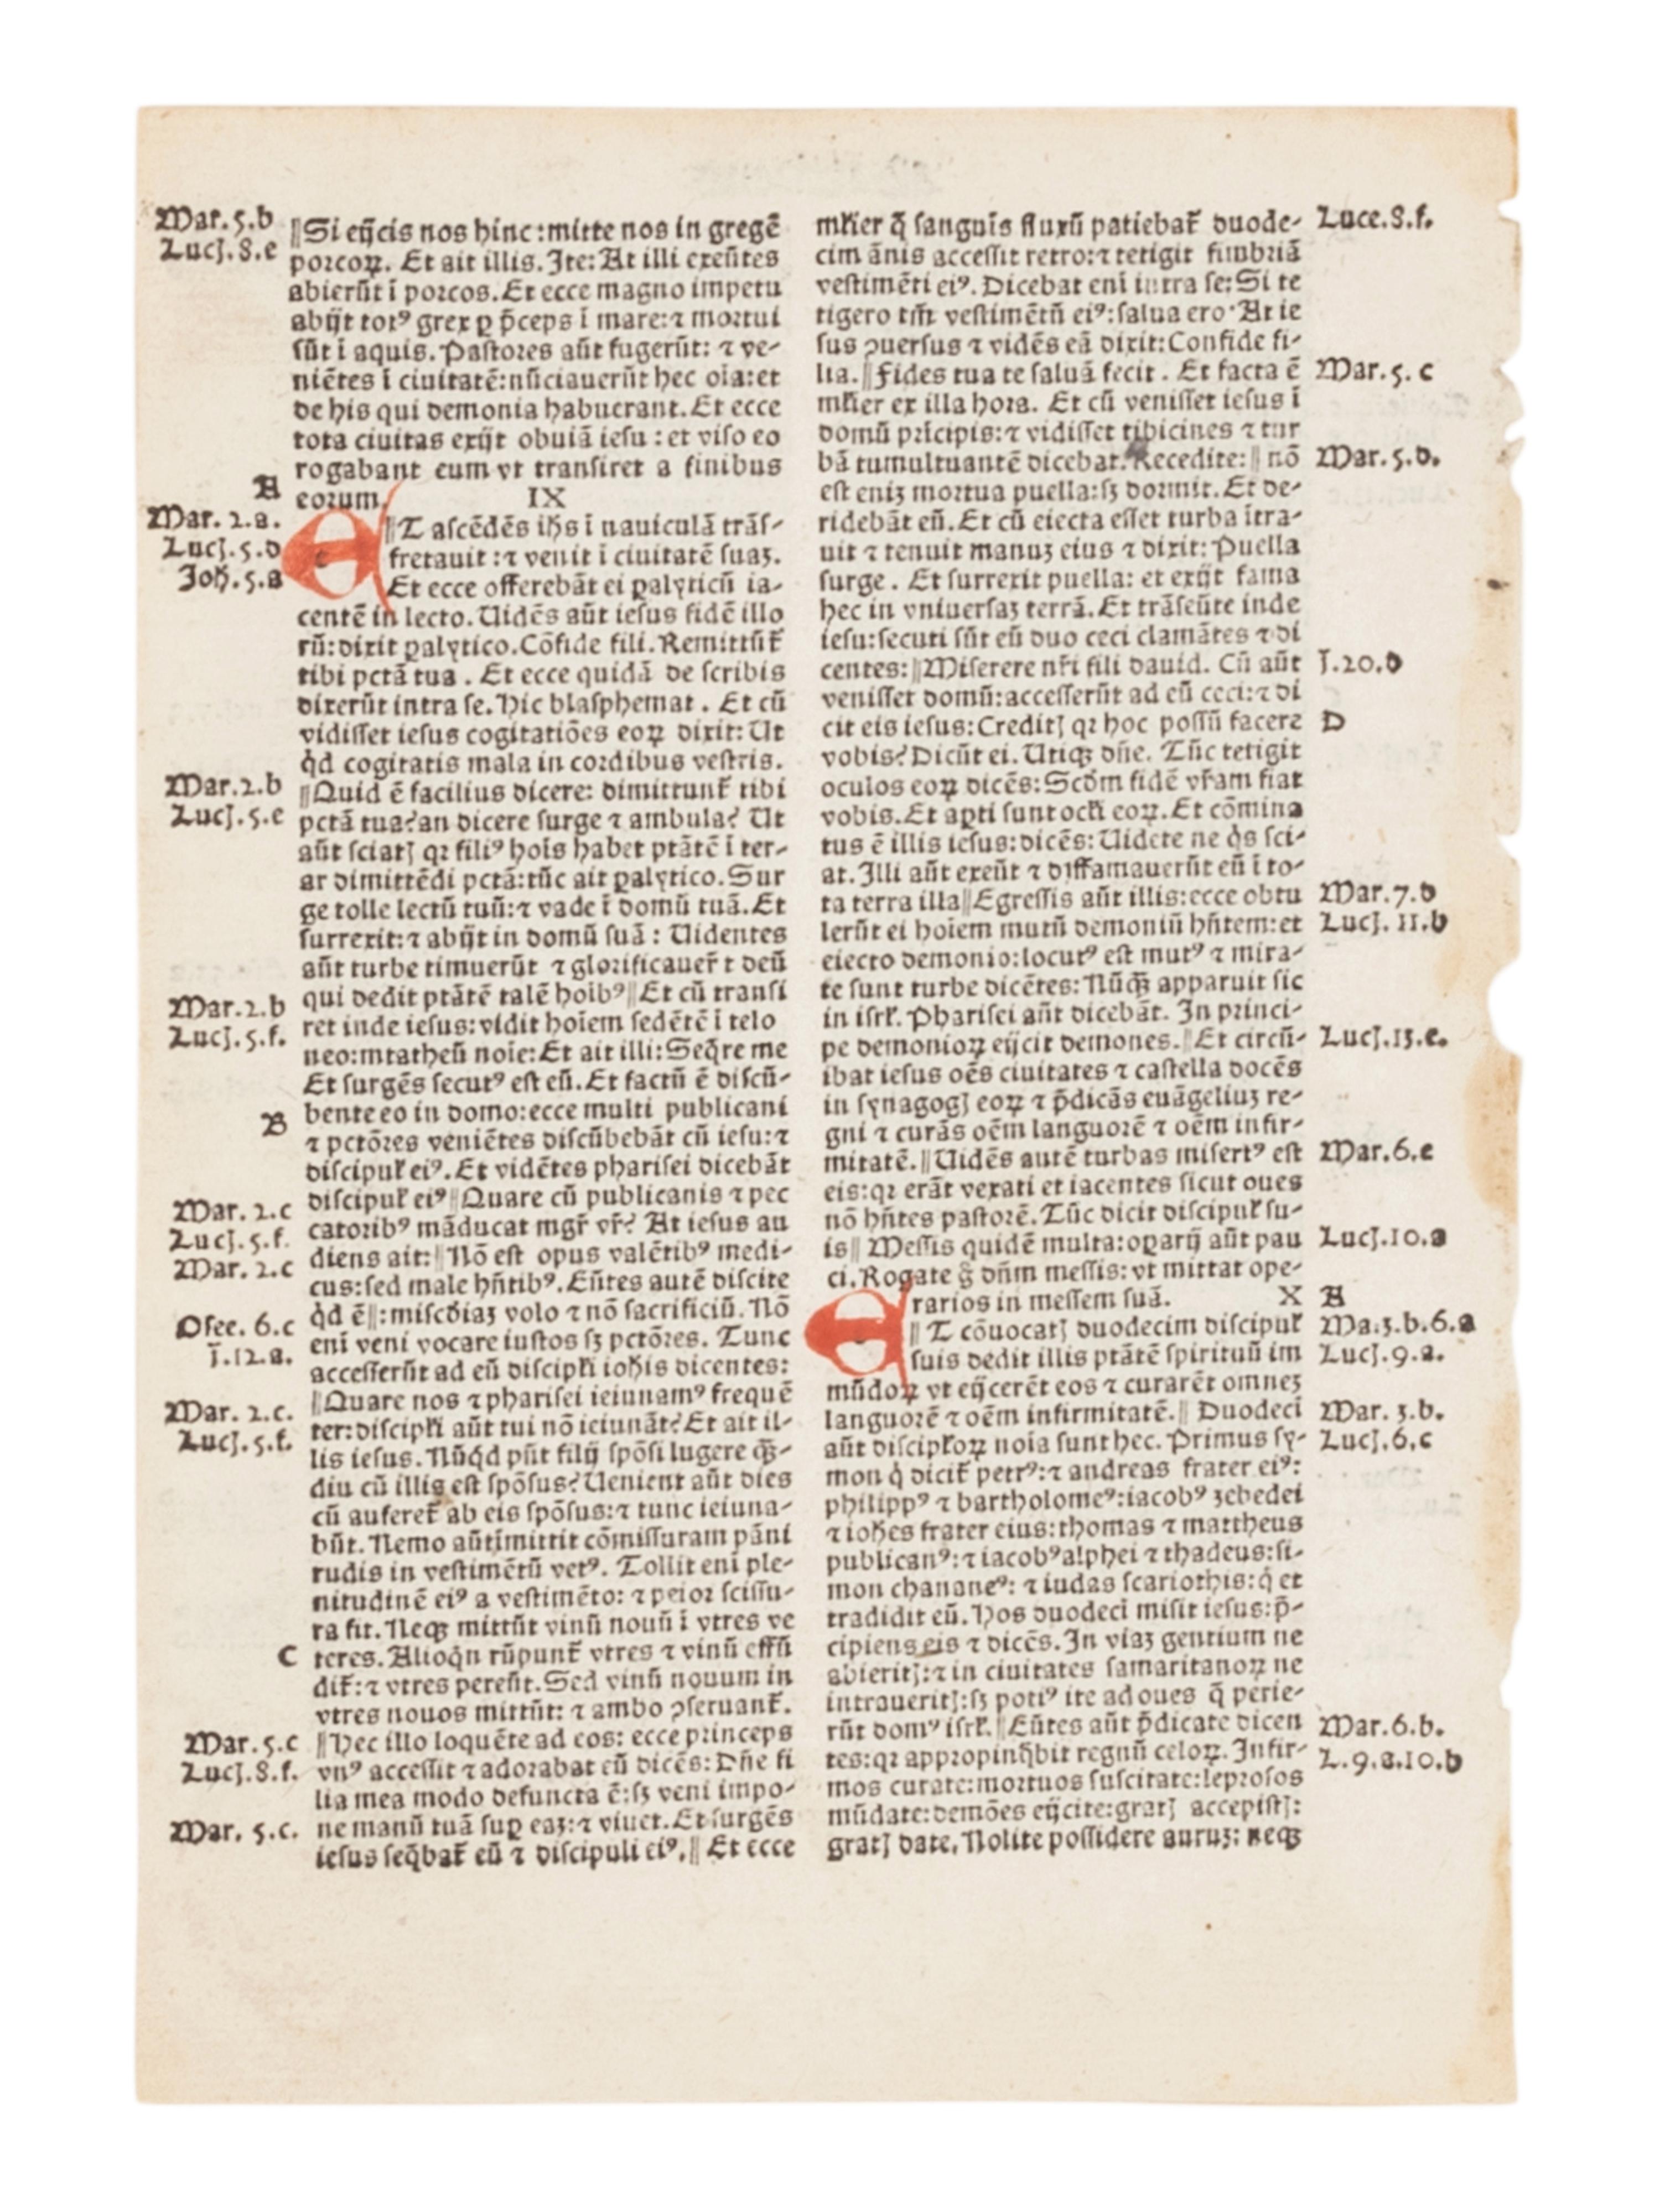 Mar.5.b
Lucꝭ.8.e
‖Si eijcis nos hinc:mitte nos in gregē
porcoꝝ. Et ait illis. Ite: At illi exeūtes
abierūt ī porcos. Et ecce magno impetu
abijt totꝰ grex ꝑ p̄ceps ī mare:⁊ mortui
sūt ī aquis. Pastores aūt fugerūt: ⁊ ve-
niētes ī ciuitatē:nūciauerūt hec oīa:et
de his qui demonia habuerant. Et ecce
tota ciuitas exijt obuiā iesu : et viso eo
rogabant eum vt transiret a finibus
A
eorum. IX
Mar. 2.a.
Lucꝭ.5.d
Joh̄.5.a
E‖T ascēdēs ih̄s ī nauiculā trās-
fretauit :⁊ venit ī ciuitatē suaꝫ.
Et ecce offerebāt ei ꝑalyticū ia-
centē in lecto. Uidēs aūt iesus fidē illo
rū:dixit ꝑalytico. Cōfide fili. Remittūt̄
tibi pctā tua . Et ecce quidā de scribis
dixerūt intra se. Hic blasphemat . Et cū
vidisset iesus cogitatiōes eoꝝ dixit: Ut
q̇d cogitatis mala in cordibus vestris.
Mar.2.b
Lucꝭ.5.e
‖Quid ē facilius dicere: dimittunt̄ tibi
pctā tua?an dicere surge ⁊ ambula? Ut
aūt sciatꝭ qꝛ filiꝰ hoīs habet ptātē ī ter-
ar dimittēdi pctā:tūc ait ꝑalytico. Sur
ge tolle lectū tuū:⁊ vade ī domū tuā. Et
surrexit:⁊ abijt in domū suā : Uidentes
aūt turbe timuerūt ⁊ glorificauer̄t deū
Mar.2.b
Lucꝭ.5.f.
qui dedit ptātē talē hoībꝰ‖Et cū transi
ret inde iesus:vidit hoīem sedētē ī telo
neo:mtatheū noīe:Et ait illi:Seq̄re me
Et surgēs secutꝰ est eū. Et factū ē discū-
B
bente eo in domo:ecce multi publicani
⁊ pctōres veniētes discūbebāt cū iesu:⁊
discipul̄ eiꝰ. Et vidētes pharisei dicebāt
Mar. 2.c
Lucꝭ.5.f.
Mar. 2.c
discipul̄ eiꝰ‖Quare cū publicanis ⁊ pec
catoribꝰ māducat mgr̄ vr̄? At iesus au
diens ait:‖Nō est opus valētibꝰ medi-
cus:sed male hn̄tibꝰ. Eūtes autē discite
Osee. 6.c
ī.12.a.
q̇d ē‖:miscd̄iaꝫ volo ⁊ nō sacrificiū. Nō
enī veni vocare iustos sꝫ pctōres. Tunc
accesserūt ad eū discipl̄i ioh̄is dicentes:
Mar. 2.c.
Lucꝭ.5.f.
‖Quare nos ⁊ pharisei ieiunamꝰ frequē
ter:discipl̄i aūt tui nō ieiunāt?Et ait il-
lis iesus. Nūq̇d pn̄t filij spōsi lugere qꝫ̄-
diu cū illis est spōsus?Uenient aūt dies
cū auferet̄ ab eis spōsus:⁊ tunc ieiuna-
būt. Nemo aūtīmittit cōmissuram pāni
rudis in vestimētū vetꝰ. Tollit enī ple-
nitudinē eiꝰ a vestimēto: ⁊ peior scissu-
ra fit. Neqꝫ mittūt vinū nouū ī vtres ve
C
teres. Alioq̇n rūpunt̄ vtres ⁊ vinū effū
dit̄:⁊ vtres pereūt. Sed vinū nouum in
vtres nouos mittūt: ⁊ ambo ꝯseruant̄.
Mar.5.c
Lucꝭ.8.f.
‖Hec illo loquēte ad eos: ecce princeps
vnꝰ accessit ⁊ adorabat eū dicēs: Dn̄e fi
lia mea modo defuncta ē:sꝫ veni impo-
Mar. 5.c.
ne manū tuā suꝑ eaꝫ:⁊ viuet. Et surgēs
iesus seq̄bat̄ eū ⁊ discipuli eiꝰ.‖ Et ecce
ml̄ier q̄ sanguīs fluxū patiebat̄ duode-
Luce.8.f.
cim ānis accessit retro:⁊ tetigit fimbriā
vestimēti eiꝰ. Dicebat enī intra se:Si te
tigero tm̄ vestimētū eiꝰ:salua ero. At ie
sus ꝯuersus ⁊ vidēs eā dixit:Confide fi-
lia.‖Fides tua te saluā fecit . Et facta ē
Mar.5. c
ml̄ier ex illa hora. Et cū venisset iesus ī
domū prīcipis:⁊ vidisset tibicines ⁊ tur
bā tumultuantē dicebat. Recedite:‖ nō
Mar.5.d.
est eniꝫ mortua puella:sꝫ dormit. Et de-
ridebāt eū. Et cū eiecta esset turba ītra-
uit ⁊ tenuit manuꝫ eius ⁊ dixit: Puella
surge . Et surrexit puella: et exijt fama
hec in vniuersaꝫ terrā. Et trāseūte inde
iesu:secuti sūt eū duo ceci clamātes ⁊ di
centes:‖Miserere nr̄i fili dauid. Cū aūt
ꝭ.20.d
venisset domū:accesserūt ad eū ceci:⁊ di
cit eis iesus:Creditꝭ qꝛ hoc possū facere
D
vobis?Dicūt ei. Utiqꝫ dn̄e. Tūc tetigit
oculos eoꝝ dicēs: Scd̄m fidē vr̄am fiat
vobis. Et aꝑti sunt ocl̄i eoꝝ. Et cōmina
tus ē illis iesus:dicēs: Uidete ne q̇s sci-
at. Illi aūt exeūt ⁊ diffamauerūt eū ī to-
ta terra illa‖Egressis aūt illis:ecce obtu
Mar.7.d
lerūt ei hoīem mutū demoniū hn̄tem:et
Lucꝭ. 11.b
eiecto demonio:locutꝰ est mutꝰ ⁊ mira-
te sunt turbe dicētes: Nūqꝫ̄ apparuit sic
in isrl̄. Pharisei aūt dicebāt. In princi-
pe demonioꝝ eijcit demones.‖Et circū-
Lucꝭ.13.e.
ibat iesus oēs ciuitates ⁊ castella docēs
in synagogꝭ eoꝝ ⁊ p̄dicās euāgeliuꝫ re-
gni ⁊ curās oēm languorē ⁊ oēm infir-
mitatē.‖Uidēs autē turbas misertꝰ est
Mar.6.e
eis:qꝛ erāt vexati et iacentes sicut oues
nō hn̄tes pastorē. Tūc dicit discipul̄ su-
is‖ Messis quidē multa:oꝑarij aūt pau
Lucꝭ.10.a
ci. Rogate g̊ dn̄m messis: vt mittat ope-
rarios in messem suā. X
A
E‖T cōuocatꝭ duodecim discipul̄
Ma.3.b.6.a
suis dedit illis ptātē spirituū im
Lucꝭ.9.a.
mūdoꝝ vt eijcerēt eos ⁊ curarēt omneꝫ
languorē ⁊ oēm infirmitatē.‖ Duodecī
Mar. 3.b.
aūt discipl̄oꝝ noīa sunt hec. Primus sy-
Lucꝭ.6.c
mon q̇ dicit̄ petrꝰ:⁊ andreas frater eiꝰ:
philippꝰ ⁊ bartholomeꝰ:iacobꝰ zebedei
⁊ ioh̄es frater eius:thomas ⁊ mattheus
publicanꝰ:⁊ iacobꝰalphei ⁊ thadeus:si-
mon chananeꝰ: ⁊ iudas scariothis:q̇ et
tradidit eū. Hos duodecī misit iesus:p̄-
cipiens eis ⁊ dicēs. In viaꝫ gentium ne
abieritꝭ:⁊ in ciuitates samaritanoꝝ ne
intraueritꝭ:sꝫ potiꝰ ite ad oues q̄ perie-
rūt domꝰ isrl̄.‖Eūtes aūt p̄dicate dicen
Mar.6.b.
tes:qꝛ appropinq̄bit regnū celoꝝ. Infir-
L.9.a.10.b
mos curate:mortuos suscitate:leprosos
mūdate:demōes eijcite:gratꝭ accepistꝭ:
gratꝭ date. Nolite possidere auruꝫ: neqꝫ